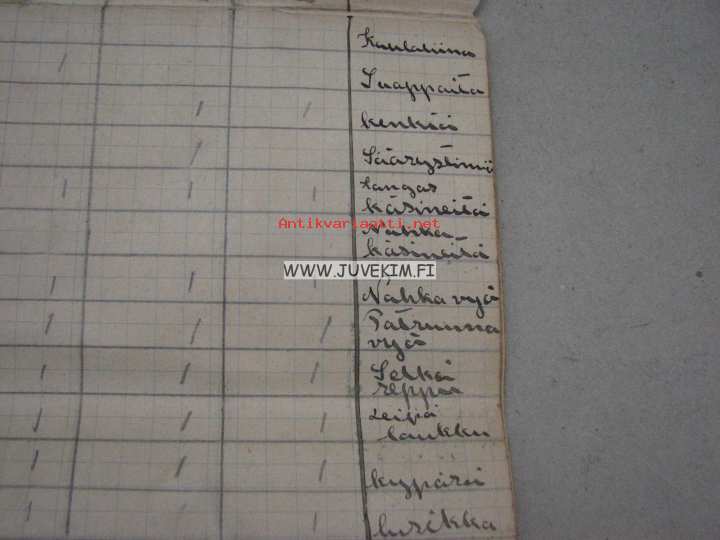 Kaulaliina
Suappaita
kenkiä
Säärystimiä
kangas
käsineitä
Antikvariaatti.net
Nahka
käsineitä
WWW.JUVEKIM.FI
Nahka vyö
Patruuna
vyö
Selkä
reppu
Leipä
laukku
kypärä
lusikka